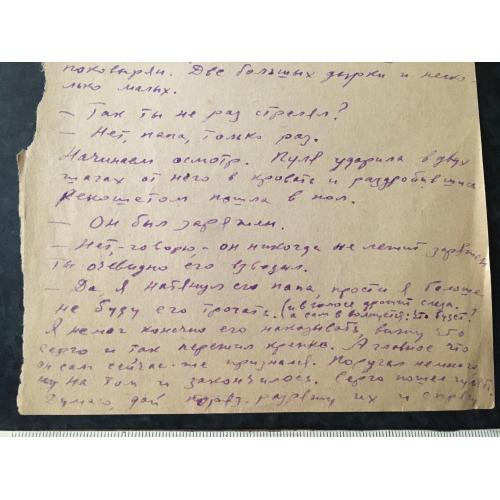 поковырян. Две больших дырки и неско-
лько малых.
— Так ты не раз стрелял?
— Нет, папа, только раз.
Начинаем осмотр. Пуля ударила в двух
шагах от него в кровать и раздробившись
рекошетом пошла в пол.
— Он был заряжен.
— Нет- говорю- он никогда не лежит заряжен
ты очевидно его взводил.
— Да, я натянул его папа, прости я больше
не буду его трогать. (и в голосе дрожит слеза.
(а сам волнуется: что будет?
Я не мог конечно его наказывать вижу что
Серго и так пережил крепко. А главное что
он сам сейчас-же признался. Поругал немного
ну на том и закончилось. Серго пошел
Думаю, дай разряжу их и